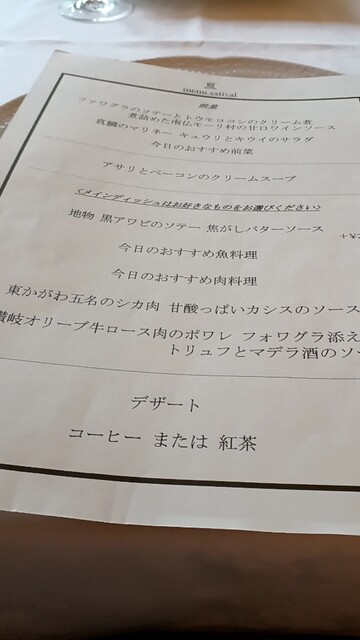 夏
menu estival
前菜
フォワグラのソテーとトウモロコシのクリーム煮
煮詰めた南仏モーリ村の甘口ワインソース
真鯛のマリネー キュウリとキウイのサラダ
今日のおすすめ前菜
アサリとベーコンのクリームスープ
<メインディッシュはお好きなものをお選びください>
地物 黒アワビのソテー 焦がしバターソース
+¥
今日のおすすめ魚料理
今日のおすすめ肉料理
東かがわ五名のシカ肉 甘酸っぱいカシスのソース
讃岐オリーブ牛ロース肉のポワレ フォワグラ添え
トリュフとマデラ酒のソ
デザート
コーヒー または 紅茶